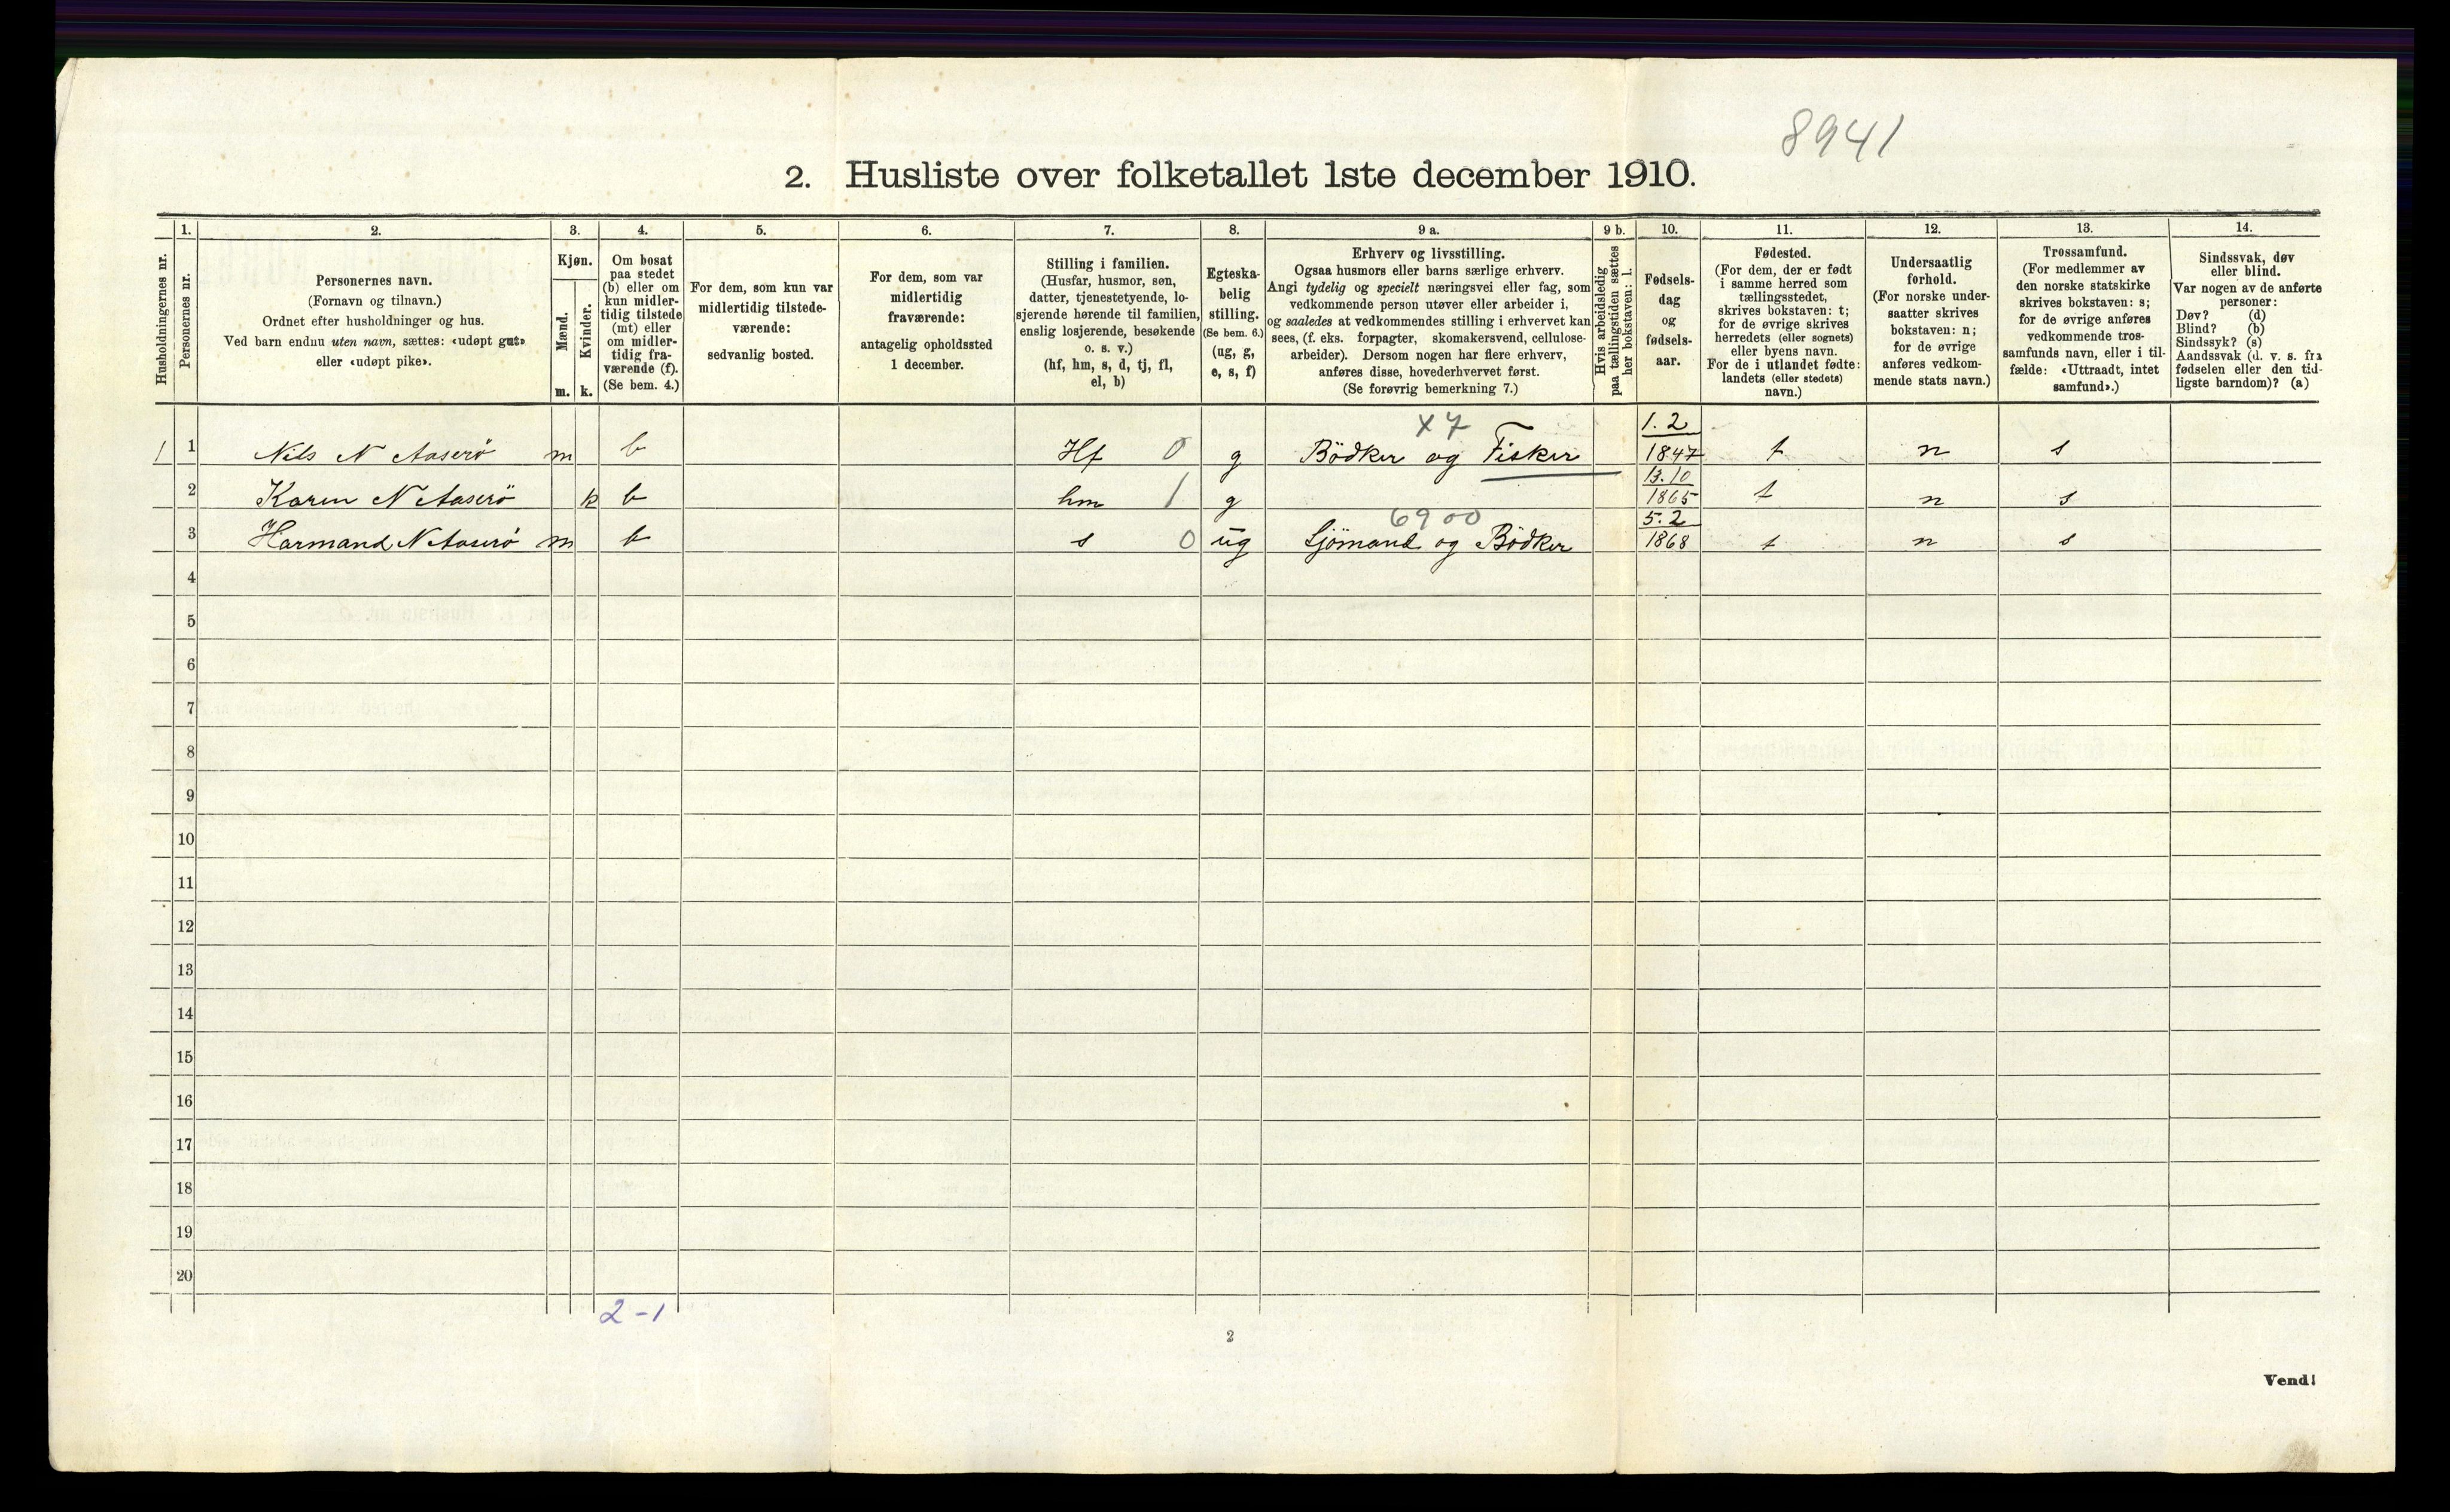 8941
2. Husliste over folketallet 1ste december 1910.
Husholdningernes nr.
1. 2. 3. 4. 5. 6. 7. 8. 9 a. 9 b. 10. 11. 12. 13. 14.
Personernes nr.
Personernes navn.
(Fornavn og tilnavn.)
Ordnet efter husholdninger og hus.
Ved barn endnu uten navn, sættes: «udøpt gut»
eller «udøpt pike».
Kjøn.
Mænd.
Kvinder.
m. k.
Om bosat
paa stedet
(b) eller om
kun midler-
tidig tilstede
(mt) eller
om midler-
tidig fra-
værende (f).
(Se bem. 4.)
For dem, som kun var
midlertidig tilstede-
værende:
sedvanlig bosted.
For dem, som var
midlertidig
fraværende:
antagelig opholdssted
1 december.
Stilling i familien.
(Husfar, husmor, søn,
datter, tjenestetyende, lo-
sjerende hørende til familien,
enslig losjerende, besøkende
o. s. v.)
(hf, hm, s, d, tj, fl,
el, b)
Egteska-
belig
stilling.
(Se bem. 6.)
(ug, g,
e, s, f)
Erhverv og livsstilling.
Ogsaa husmors eller barns særlige erhverv.
Angi tydelig og specielt næringsvei eller fag, som
vedkommende person utøver eller arbeider i,
og saaledes at vedkommendes stilling i erhvervet kan
sees, (f. eks. forpagter, skomakersvend, cellulose-
arbeider). Dersom nogen har flere erhverv,
anføres disse, hovederhvervet først.
(Se forøvrig bemerkning 7.)
Hvis arbeidsledig
paa tællingstiden sættes
her bokstaven: l.
Fødsels-
dag
og
fødsels-
aar.
Fødested.
(For dem, der er født
i samme herred som
tællingsstedet,
skrives bokstaven: t;
for de øvrige skrives
herredets (eller sognets)
eller byens navn.
For de i utlandet fødte:
landets (eller stedets)
navn.)
Undersaatlig
forhold.
(For norske under-
saatter skrives
bokstaven: n;
for de øvrige
anføres vedkom-
mende stats navn.)
Trossamfund.
(For medlemmer av
den norske statskirke
skrives bokstaven: s;
for de øvrige anføres
vedkommende tros-
samfunds navn, eller i til-
fælde: «Uttraadt, intet
samfund».)
Sindssvak, døv
eller blind.
Var nogen av de anførte
personer:
Døv? (d)
Blind? (b)
Sindssyk? (s)
Aandssvak (d. v. s. fra
fødselen eller den tid-
ligste barndom)? (a)
x 7 1. 2
1 1 Nils N Aaserö m b Hf 0 g Bödker og Fisker 1847 t n s
13. 10
2 Karen N Aaserö k b hm 1 g 1865 t n s
6900 5. 2
3 Harmand N Aaserö m b s 0 ug Sjömand og Bödker 1868 t n s
4
5
6
7
8
9
10
11
12
13
14
15
16
17
18
19
20
2-1
2
Vend!